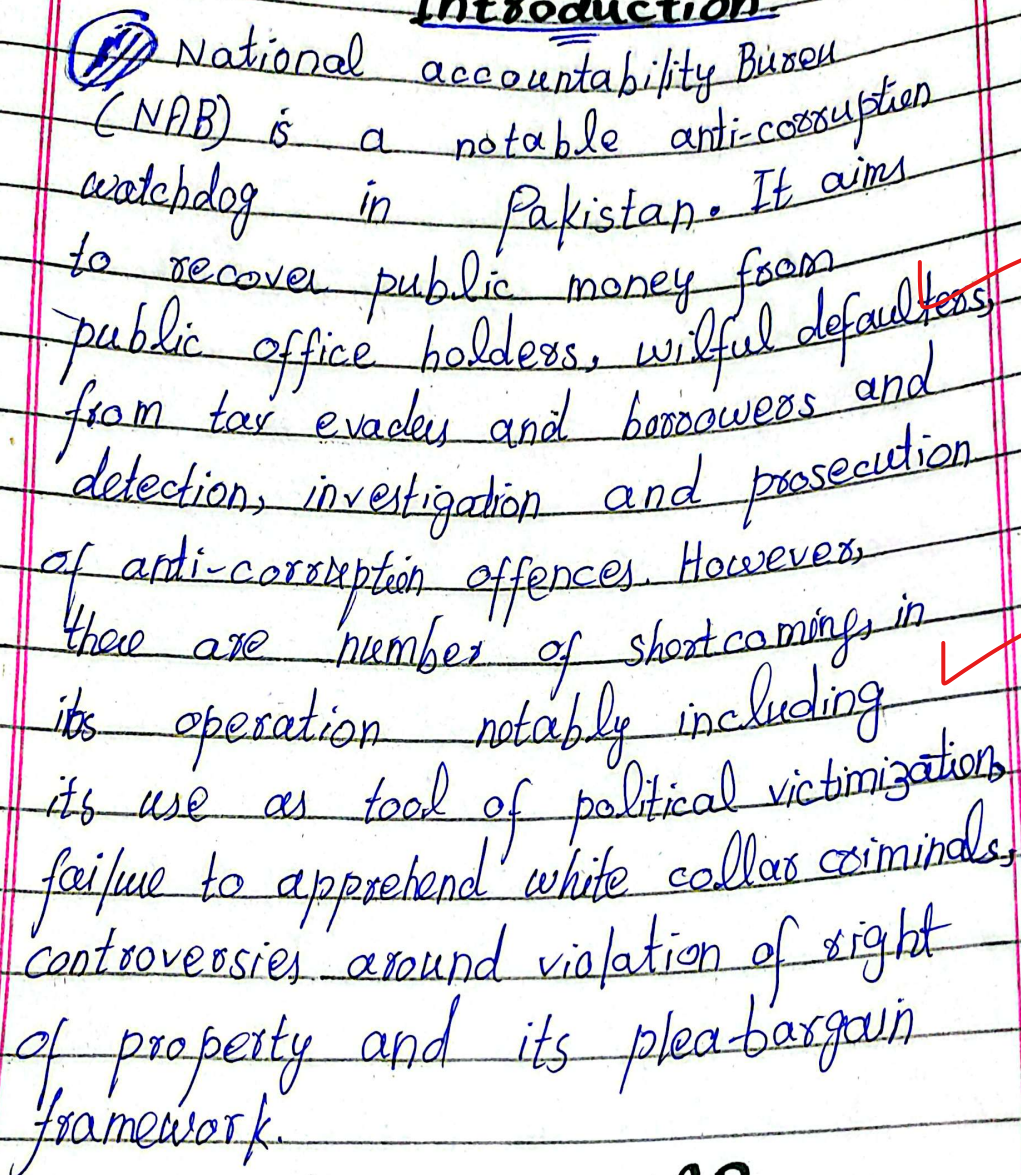 Introduction.
National accountability Bureu
(NAB) is a notable anti-corruption
watchdog in Pakistan. It aims
to recover public money from
public office holders, wilful defaulters,
from tax evaders and borrowers and
detection, investigation and prosecution
of anti-corruption offences. However,
there are number of shortcomings in
its operation notably including
its use as tool of political victimization,
failure to apprehend white collar criminals,
controversies around violation of right
of property and its plea-bargain
framework.